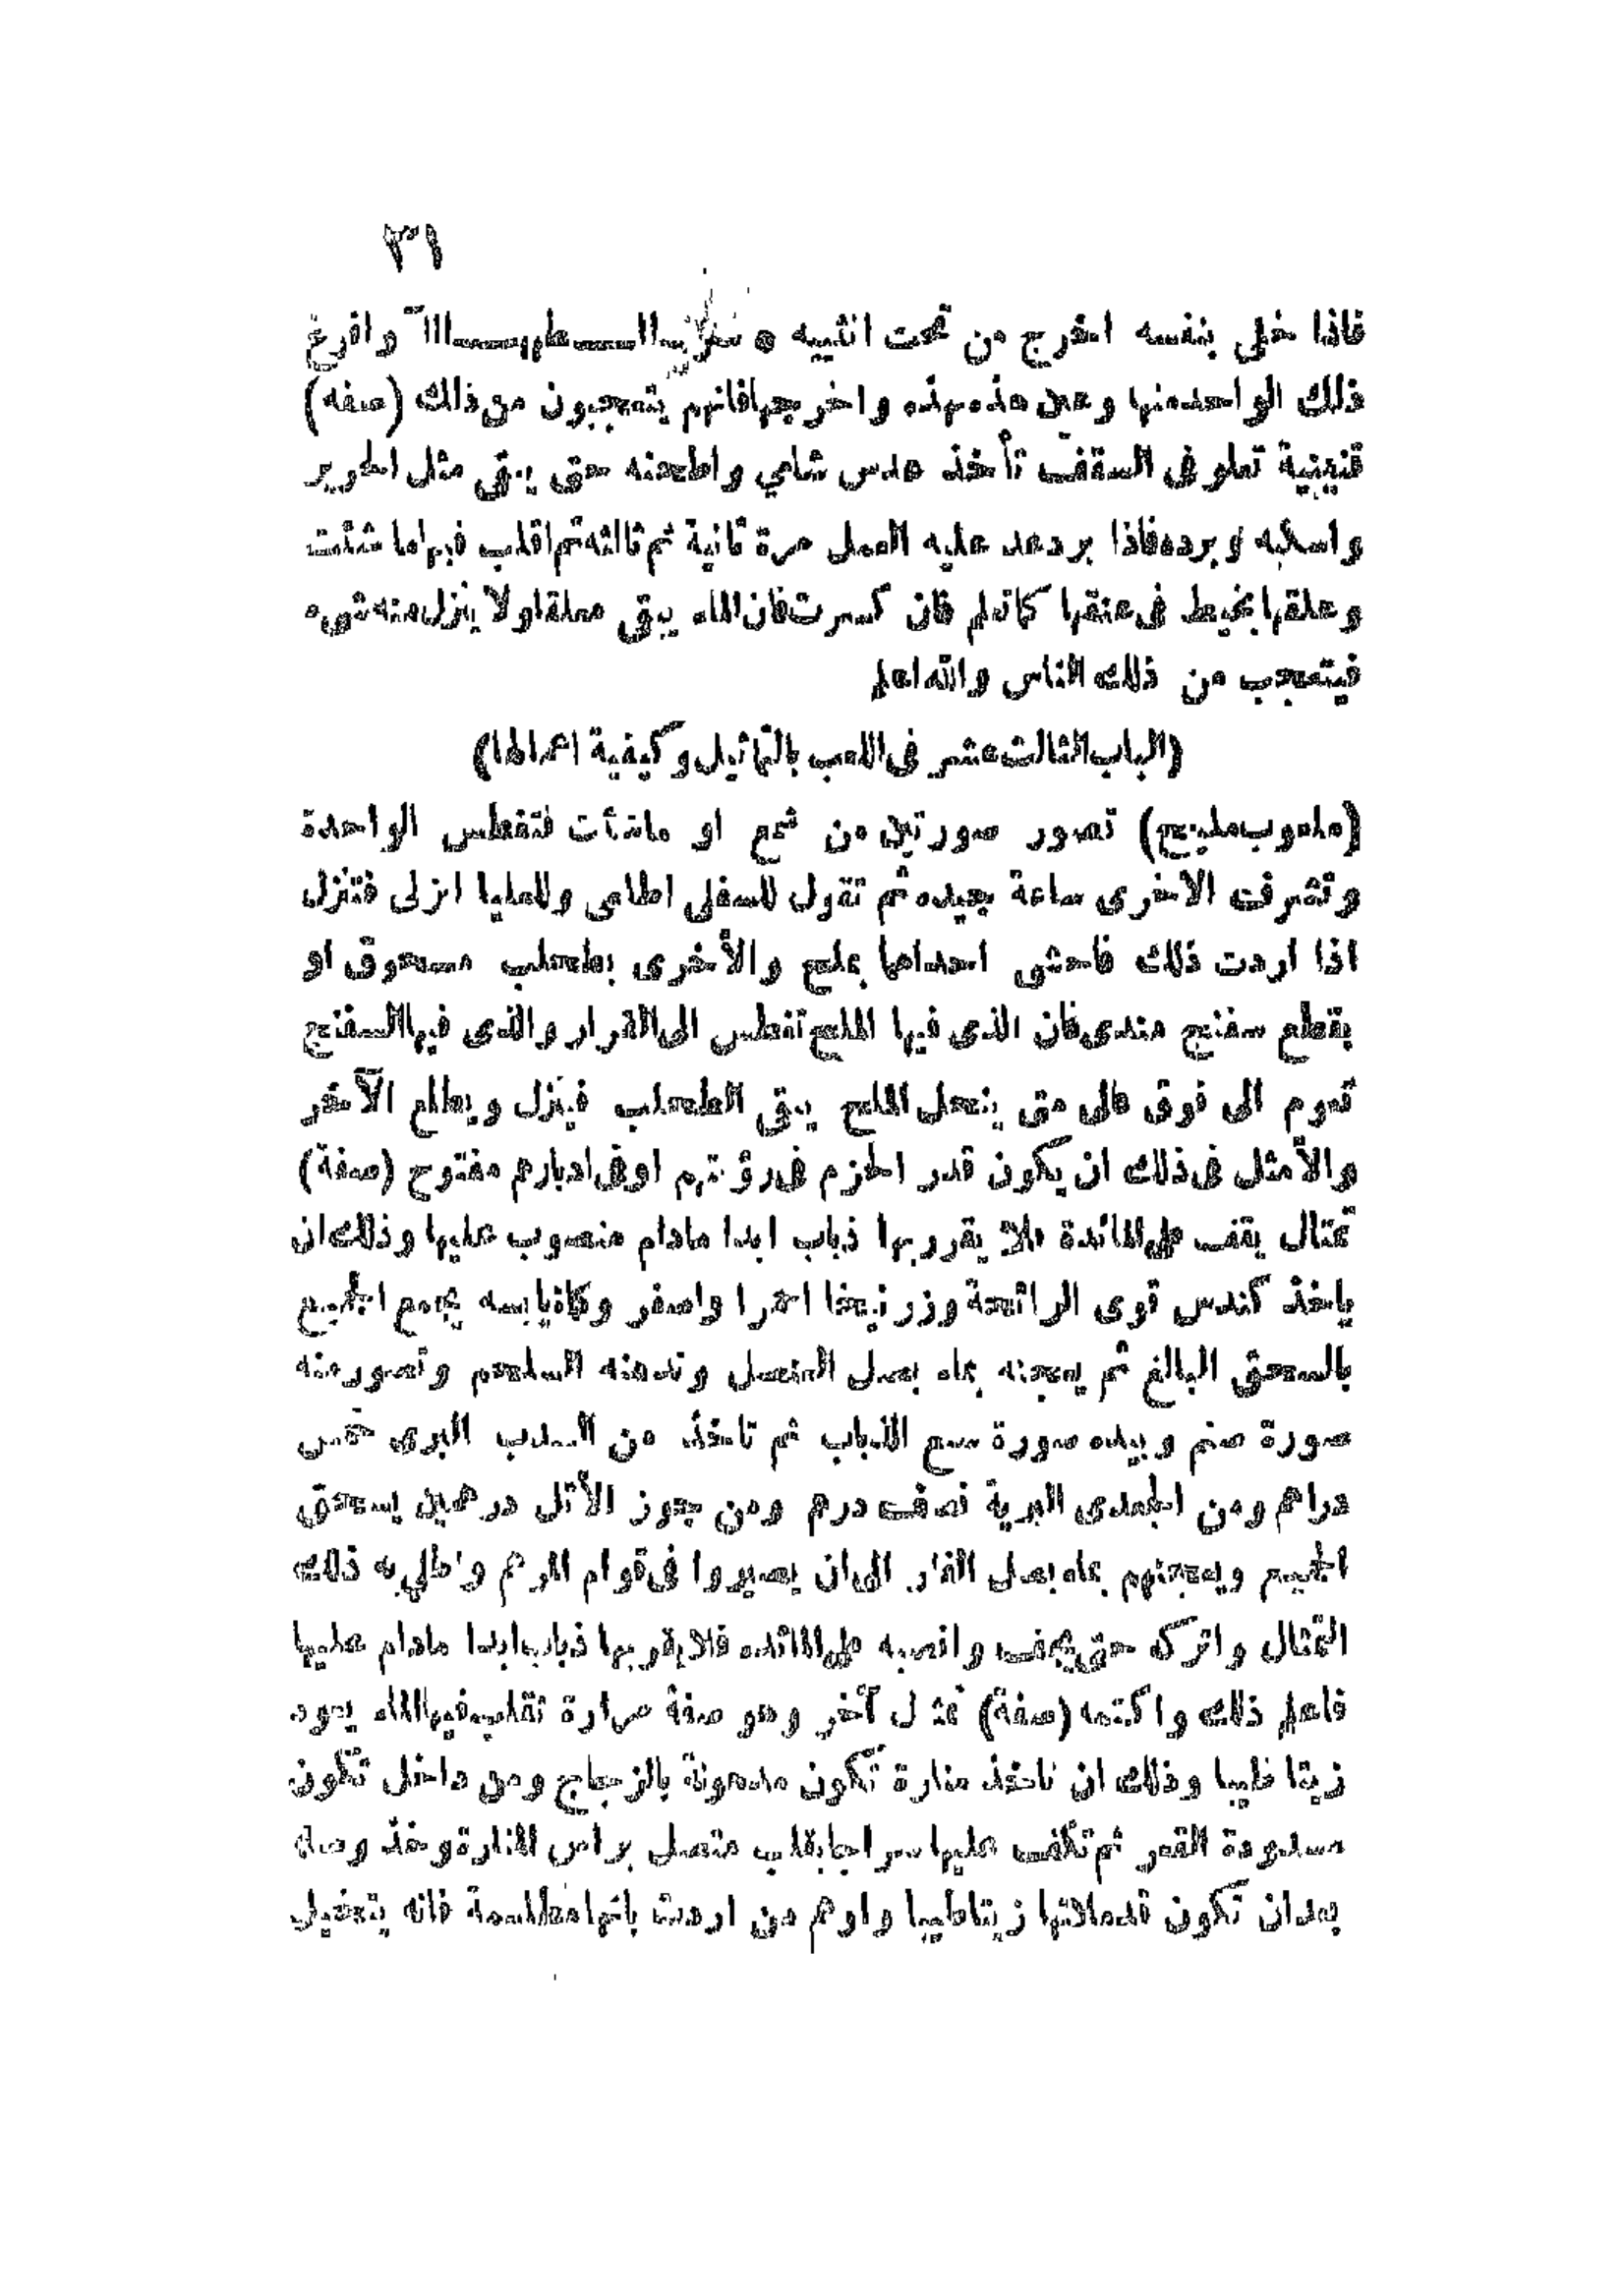 ٣١
فاذا خلى بنفسه اخرج من تحت انثييه وافرغ
ذلك الواحدمنها وعين هذه بهذه واخرجهافانهم يتعجبون من ذلك (صفه)
قنينية تعلو فى السقف تأخذ عدس شامي واطحنه حتى يبقى مثل الحرير
واسكبه وبرده فاذا بردعد عليه العمل مرة ثانية ثم ثالثه ثم اقلب فيها ما شئت
وعلقها بخيط فى عنقها كاتعلم فان كسرت فان الماء يبقى معلقا ولا ينزل منه شىء
فيتعجب من ذلك الناس والله اعلم
(الباب الثالث عشر فى اللعب بالتماثيل وكيفية اعمالها)
(ملعوب مليح) تصور صورتين من شمع او ماشأت فتغطس الواحدة
وتشرف الاخرى ساعة جيده ثم تقول للسفلى اطلعى وللعليا انزلى فتنزل
اذا اردت ذلك فاحشى احداها بملح والأخرى بطحلب مسحوق او
بقطع سفنج مندى فان الذى فيها الملح تغطس الى القرار والذى فيها السفنج
تعوم الى فوق فالى متى ينحل الملح يبقى الطحلب فينزل ويطلع الآخر
والأمثل فى ذلك ان يكون قدر الحزم فى رؤتهم اوفى ادبارهم مفتوح (صفة)
تمثال يقف على المائدة فلا يقرربها ذباب ابدا مادام منصوب عليها وذلك ان
ياخذ كندس قوى الرائحة وزرنيخا احمرا واصفر وكماة يابسه يجمع الجميع
بالسحق البالغ ثم يعجنه بماء بصل العنصل وتدهنه السلجم وتصورمنه
صورة صنم وبيده صورة سبع الذباب ثم تاخذ من السدب البرى خمس
دراهم ومن الجعدى البرية نصف درهم ومن جوز الأثل درهمين يسحق
الجميع ويعجنهم بماء بصل الفار الى ان يصيروا فى قوام المرهم واطلي به ذلك
التمثال واتركه حتى يجف وانصبه على المائده فلا يقربها ذباب ابدا مادام عليها
فاعلم ذلك واكتمه (صفة) آخر وهو صفة تقلب فيها الماء يعود
زيتا طيبا وذلك ان تاخذ منارة تكون مدهونة بالزجاج ومن داخل تكون
مسدودة القعر ثم تكفف عليها سراجا بقلب متصل براس المنارة وخذ
بعدان تكون قدملاتها زيتاطيبا واوهم من اردت بانها مطلسمة فانه يتخيل